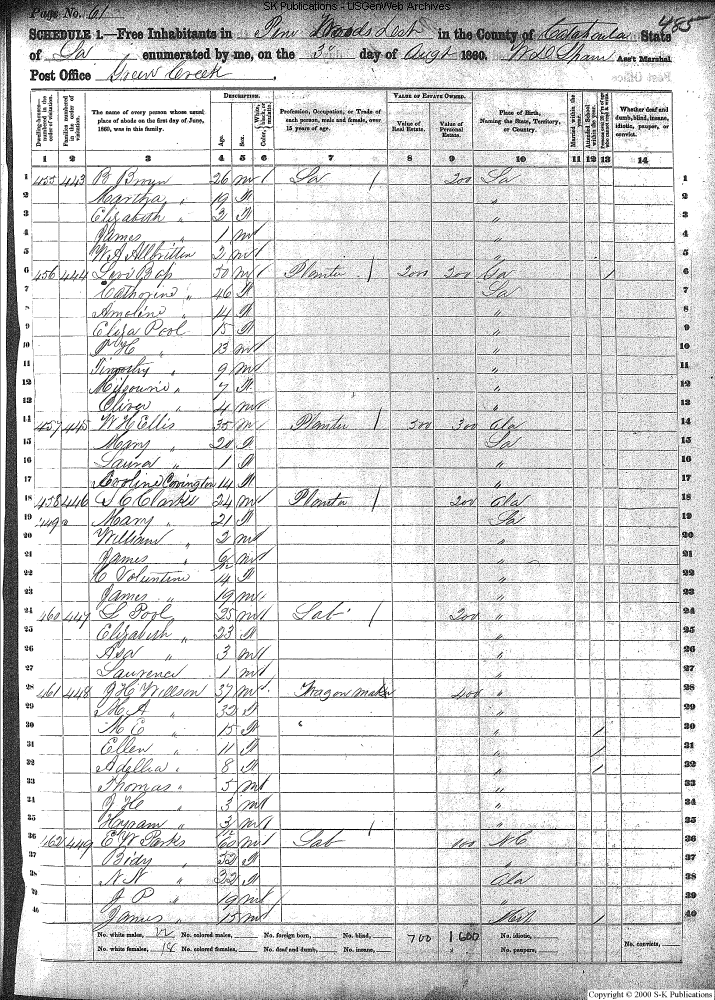 SK Publications - USGenWeb Archives
Page No. 61
485
SCHEDULE 1.—Free Inhabitants in Piny Woods Dist in the County of Catahoula State
of La enumerated by me, on the 3d day of Augt 1860. Ass't Marshal
Post Office Green Creek
Dwelling-houses—numbered in the order of visitation.
Families numbered in the order of visitation.
The name of every person whose usual place of abode on the first day of June, 1860, was in this family.
DESCRIPTION.
Age.
Sex.
Color, White, black, or mulatto.
Profession, Occupation, or Trade of each person, male and female, over 15 years of age.
VALUE OF ESTATE OWNED.
Value of Real Estate.
Value of Personal Estate.
Place of Birth, Naming the State, Territory, or Country.
Married within the year.
Attended School within the year.
Whether deaf and dumb, blind, insane, idiotic, pauper, or convict.
1 2 3 4 5 6 7 8 9 10 11 12 13 14
1 455 443 B 26 m 1 La / 200 La 1
2 Martha " 19 f " 2
3 Elizabeth " 3 f " 3
4 James " 1 m " 4
5 W A Allbritten 2 m 1 " 5
6 456 444 Levi 50 m 1 Planter / 2000 200 Ga / 6
7 Catharine " 46 f La 7
8 Amoline " 14 f " 8
9 Eliza Pool 15 f " 9
10 " 13 m 1 " 10
11 Timothy " 9 m 1 " 11
12 " 7 f " 12
13 Oliver " 4 m 1 " 13
14 457 445 W H Ellis 35 m 1 Planter / 500 300 Ala 14
15 Mary " 20 f La 15
16 Laura " 1 f " 16
17 Covington 14 f " 17
18 458 446 S C Clarke 24 m 1 Planter / 200 Ala 18
19 Mary " 21 f La 19
20 William " 2 m 1 " 20
21 James " 6/12 m 1 " 21
22 C Voluntine 14 f " 22
23 James " 19 m " 23
24 460 447 L Pool 25 m 1 Lab / 200 " 24
25 Elizabeth " 23 f " 25
26 Asa " 3 m 1 " 26
27 Laurence 1 m 1 " 27
28 461 448 J H Willson 37 m 1 Wagon maker 400 " 28
29 M A " 32 f " 29
30 M E " 15 f " / 30
31 Ellen " 11 f " / 31
32 Adellia " 8 f " / 32
33 Thomas " 5 m 1 " 33
34 J H " 3 m 1 " 34
35 Hyram " 3/12 m 1 / " 35
36 462 449 E W Parks 60 m 1 Lab 100 NC 36
37 Bidy " 52 f " 37
38 N N " 22 f Ala 38
39 J P " 19 m 1 " 39
40 James " 15 m 1 / 40
No. white males, 22 No. colored males, No. foreign born, No. blind, 700 1600 No. idiotic,
No. white females, 18 No. colored females, No. deaf and dumb, No. insane, No. paupers, No. convicts,
Copyright © 2000 S-K Publications